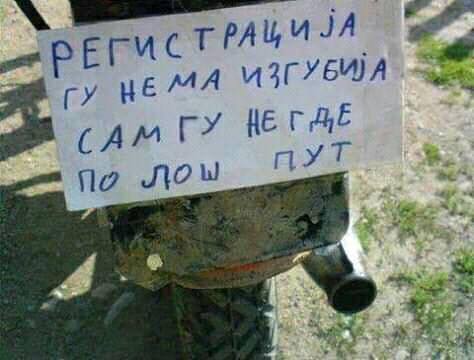 РЕГИСТРАЦИЈА
ГУ НЕМА ИЗГУБИЈА
САМ ГУ НЕГДЕ
ПО ЛОШ ПУТ